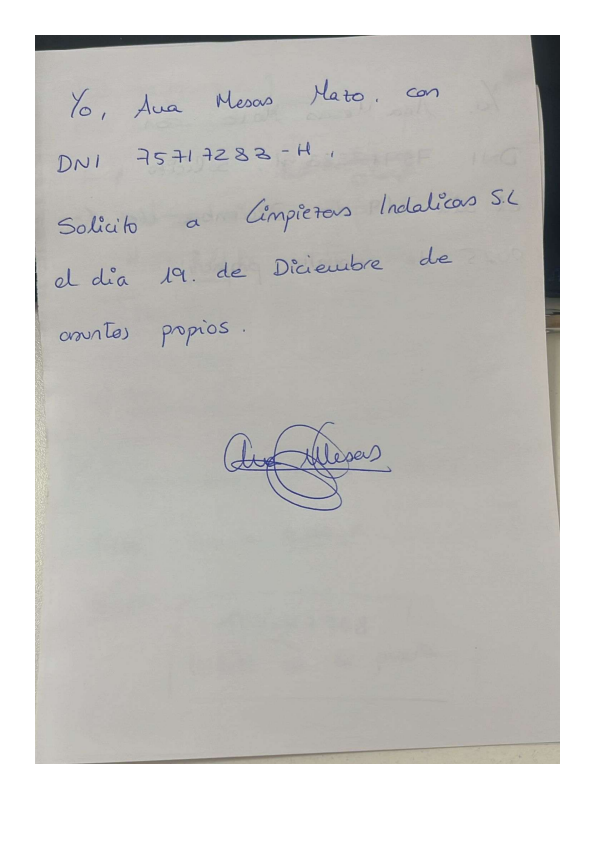 Yo, Ana Mesas Mazo, con
DNI 75717283-H,
Solicito a Limpiezas Indalicas S.L
el dia 19. de Diciembre de
asuntos propios.
Ana Mesas